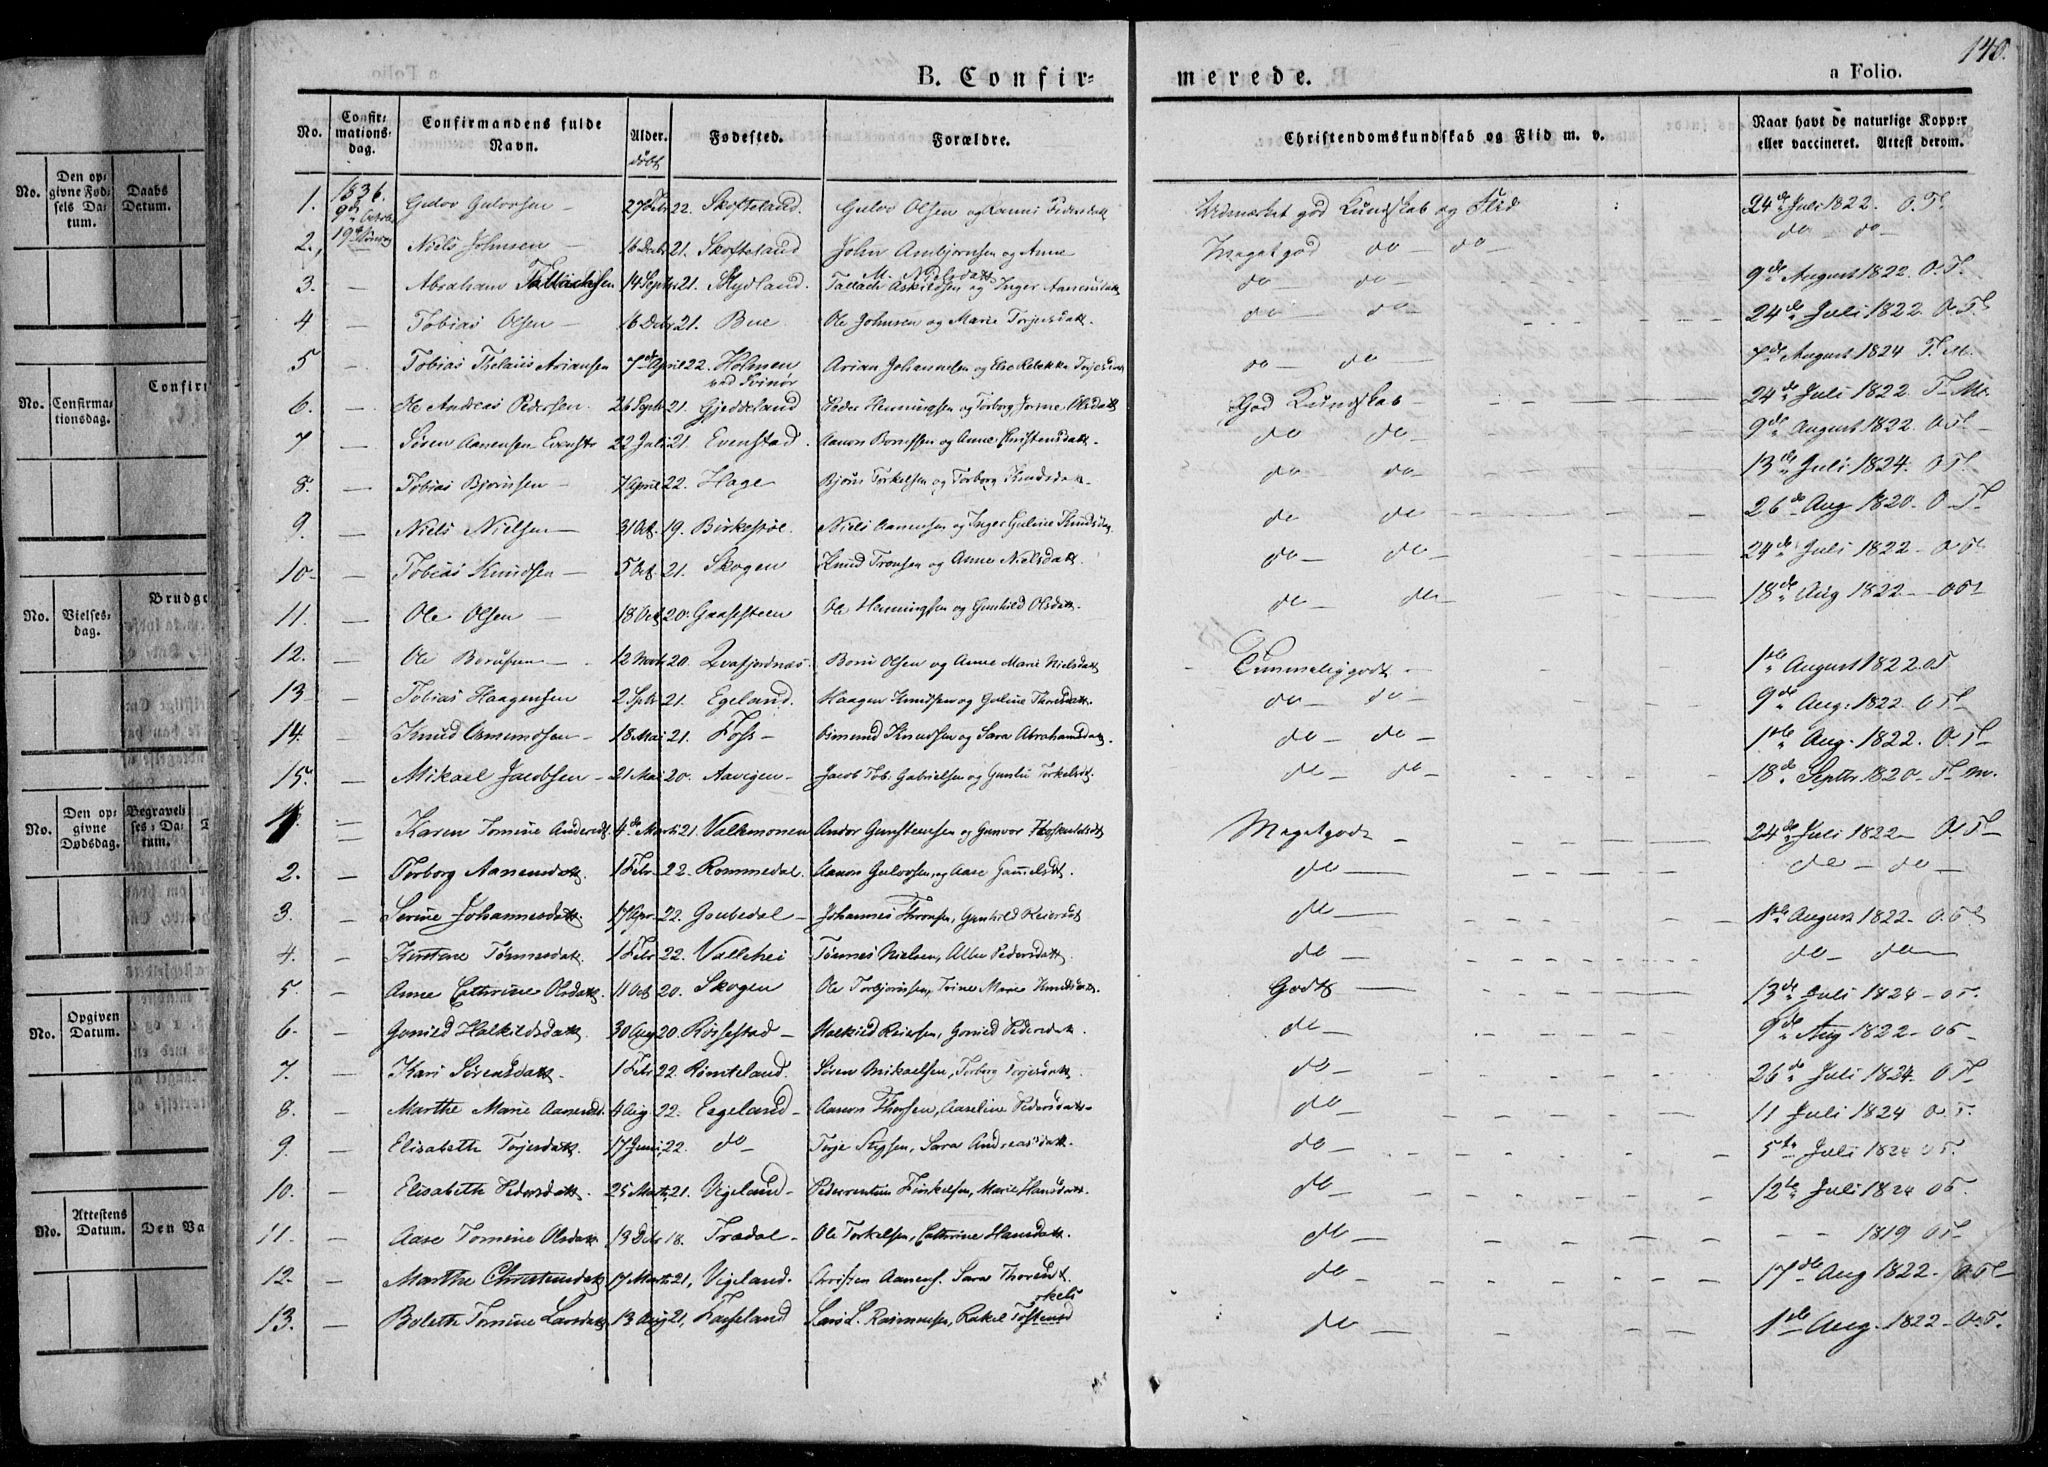 B. Confir-
merede.
a Folio.
140.
No.
Confir-mations-dag.
Confirmandens fulde Navn.
Alder. döbt
Fødested.
Forældre.
Christendomskundskab og Flid m. v.
Naar havt de naturlige Kopper eller vaccineret. Attest derom.
1. 1836. 9de Octobr Gulov Gulovsen 27 Febr 22. Skofteland. Gulov Olsen og Pedersdatt Udmærket god Kundskab og Flid 24de Juli 1822. O. Tl
2. 19de Niels Johnsen 16 Decbr 21. Skofteland John Ambjørnsen og Anne M. Nielsdatt Meget god do do do do
3. Abraham Tallachsen 14 Septr 21. Skydland. Tallach Askildsen og Inger Aanensdatt do do 9de August 1822. O. T.
4 Tobias Olsen 16 Debr 21. Bue. Ole Johnsen og Marie Torjusdatt. do do 24de Juli 1822. O. Tl
5 Tobias Ariansen 7de April 22. Holmen ved Svinør Arian Johannesen og Else Rebekka do do 7de August 1824 T. M.
6. Ole Andreas Pedersen. 26 Septr 21. Gjeddeland Peder Henningsen og Torborg Olsdatt God Kundskab 24de Juli 1822. T. M.
7 Sören Aanensen Evenstr 22 Juli 21. Evenstad. Aanon Berntsen og Anne Christensdatt. do do 9de August 1822. O Tl
8. Tobias Bjørnsen 7 April 22. Hage Bjørn Torkelsen og Torborg Knudsdatt. do do 13de Juli 1824. O T.
9. Niels Nielsen 31 Oct. 19. Birkestøl. Niels Aanensen og Inger Guline Knudsd. do do 26de Aug 1820. O. Tl
10 Tobias Knudsen 5 Oct. 21. Skogen Knud Tronsen og Anne Nielsdatt. do do 24de Juli 1822. O. Tl
11. Ole Olsen 18 Oct 20. Gaasesteen Ole Henningsen og Gunhild Olsdatt. do do 18de Aug 1822. O Tl
12. Ole Berntsen 12 Novbr 20. Qvafjordnæs Bernt Olsen og Anne Marie Nielsdatt Temmelig godt 1ste August 1822. O T
13 Tobias Haagensen 2 Sptr 21. Egeland. Haagen Knudsen og Guline Thorsdatt. do do 9de Aug: 1822. O Tl
14. Knud Osmundsen 18 Mai 21. Foss Osmund Knudsen og Sara Abrahamsdatt. do do 1ste Aug. 1822. O. Tl
15. Mikael Jacobsen 21 Mai 20. Aavigen Jacob Tob. Gabrielsen og Torkelsdt. do do 18de Septbr 1820. Tl m.
1. Karen Tomine Andersdt 4de Marts 21. Valkmonen Andor Gunsteensen og Gunvor Meget godt 24de Juli 1822 O. Tl
2. Torborg Aanensdatt. 1 Febr 22. Rommedal. Aanon Gulovsen, og Aase Gammelsdt. do do do
3. Serine Johannesdatt. 17 Apr. 22. Goubedal Johannes Thronsen, Gunhild Reiersdt do 1ste August 1822. O. Tl
4. Kirstene Tønnesdatt 1 Febr 22. Vallehei Tønnes Nielsen, Pedersdatt do do do
5. Anne Cathrine Olsdatt. 11 Oct 20. Skogen Ole Torbjørnsen, Trine Marie Knudsdatt. Godt 13de Juli 1824 O T.
6. Gunild Halkildsdatt. 30 Aug 20. Røssestad Halkild Reiersen, Gunild Pedersdatt. do 9de Aug 1822 O T
7. Kari Sørensdatt. 1 Febr 22. Rømteland. Søren Mikaelsen, Torborg Torjesdatt. do 26de Juli 1824. O Tl
8 Marthe Marie Aanensdt. 4 Aug 22. Eegeland Aanon Thorsen, Aaseline Pedersdatt. do 11 Juli 1824 O. T.
9 Elisabeth Torjesdatt. 17 Juni 22. do Torje Sara Andreasdatt. do 5te Juli 1824 O T.
10. Elisabeth Pedersdatt. 25 Marts 21. Vigeland Marie Hansdatt. do 12te Juli 1824 O T.
11. Aase Tomine Olsdatt. 13 Debr 18. Trædal Ole Torkelsen, Cathrine Hansdatt. do 1819 O Tl
12. Marthe Christensdatt 17 Marts 21, Vigeland. Christen Aanens. Sara do 17de Aug 1822. O Tl
13. Boleth Tomine Larsdatt 13 Aug 21, Fasseland Lars L. Rasmussen, Rakel do 1ste Aug. 1822 O. T.
No.
Den op-givne Fød-sels Da-tum.
Daabs Datum.
No.
Confirma-tionsdag.
Confir
No.
Vielses-dag.
Brudg
No.
Den op-givne Dødsdag.
Begravel-ses-Da-tum.
No.
Opgiven Datum.
No.
Attestens Datum.
Den Va